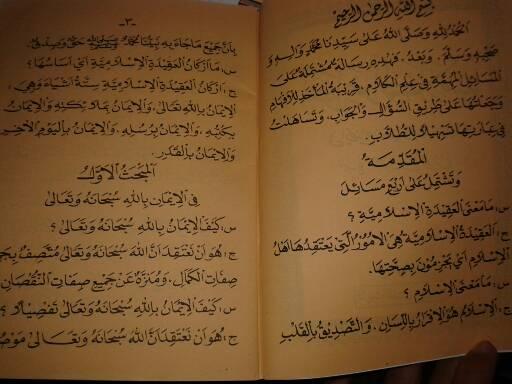 بسم الله الرحمن الرحيم
الحمد لله وصلى الله على سيدنا محمد وآله و
صحبه وسلم ، وبعد ، فهذه رسالة مشتملة على
المسائل المهمة في علم الكلام ، قريبة المأخذ للأفهام
وجعلتها على طريق السؤال والجواب ، وتساهلت
في عبارتها تسهيلا للطلاب .
المقدمة
وتشتمل على أربع مسائل
س : ما معنى العقيدة الإسلامية ؟
ج : العقيدة الإسلامية هي الأمور التي يعتقدها أهل
الإسلام أي يجزمون بصحتها .
س : ما معنى الإسلام ؟
ج : الإسلام هو الإقرار باللسان ، والتصديق بالقلب
- ٣ -
بأن جميع ما جاء به نبينا محمد ﷺ حق وصدق .
س : ما أركان العقيدة الإسلامية أي أساسها ؟
ج : أركان العقيدة الإسلامية ستة أشياء وهي ،
الإيمان بالله تعالى ، والإيمان بملائكته والإيمان
بكتبه ، والإيمان برسله . والإيمان باليوم الآخر
والإيمان بالقدر .
المبحث الأول
في الإيمان بالله سبحانه وتعالى
س : كيف الإيمان بالله سبحانه وتعالى ؟
ج : هو أن نعتقد أن الله سبحانه وتعالى متصف بج
صفات الكمال ، ومنزه عن جميع صفات النقصان
س : كيف الإيمان بالله سبحانه وتعالى تفصيلا ؟
ج : هو أن نعتقد أن الله سبحانه وتعالى موص